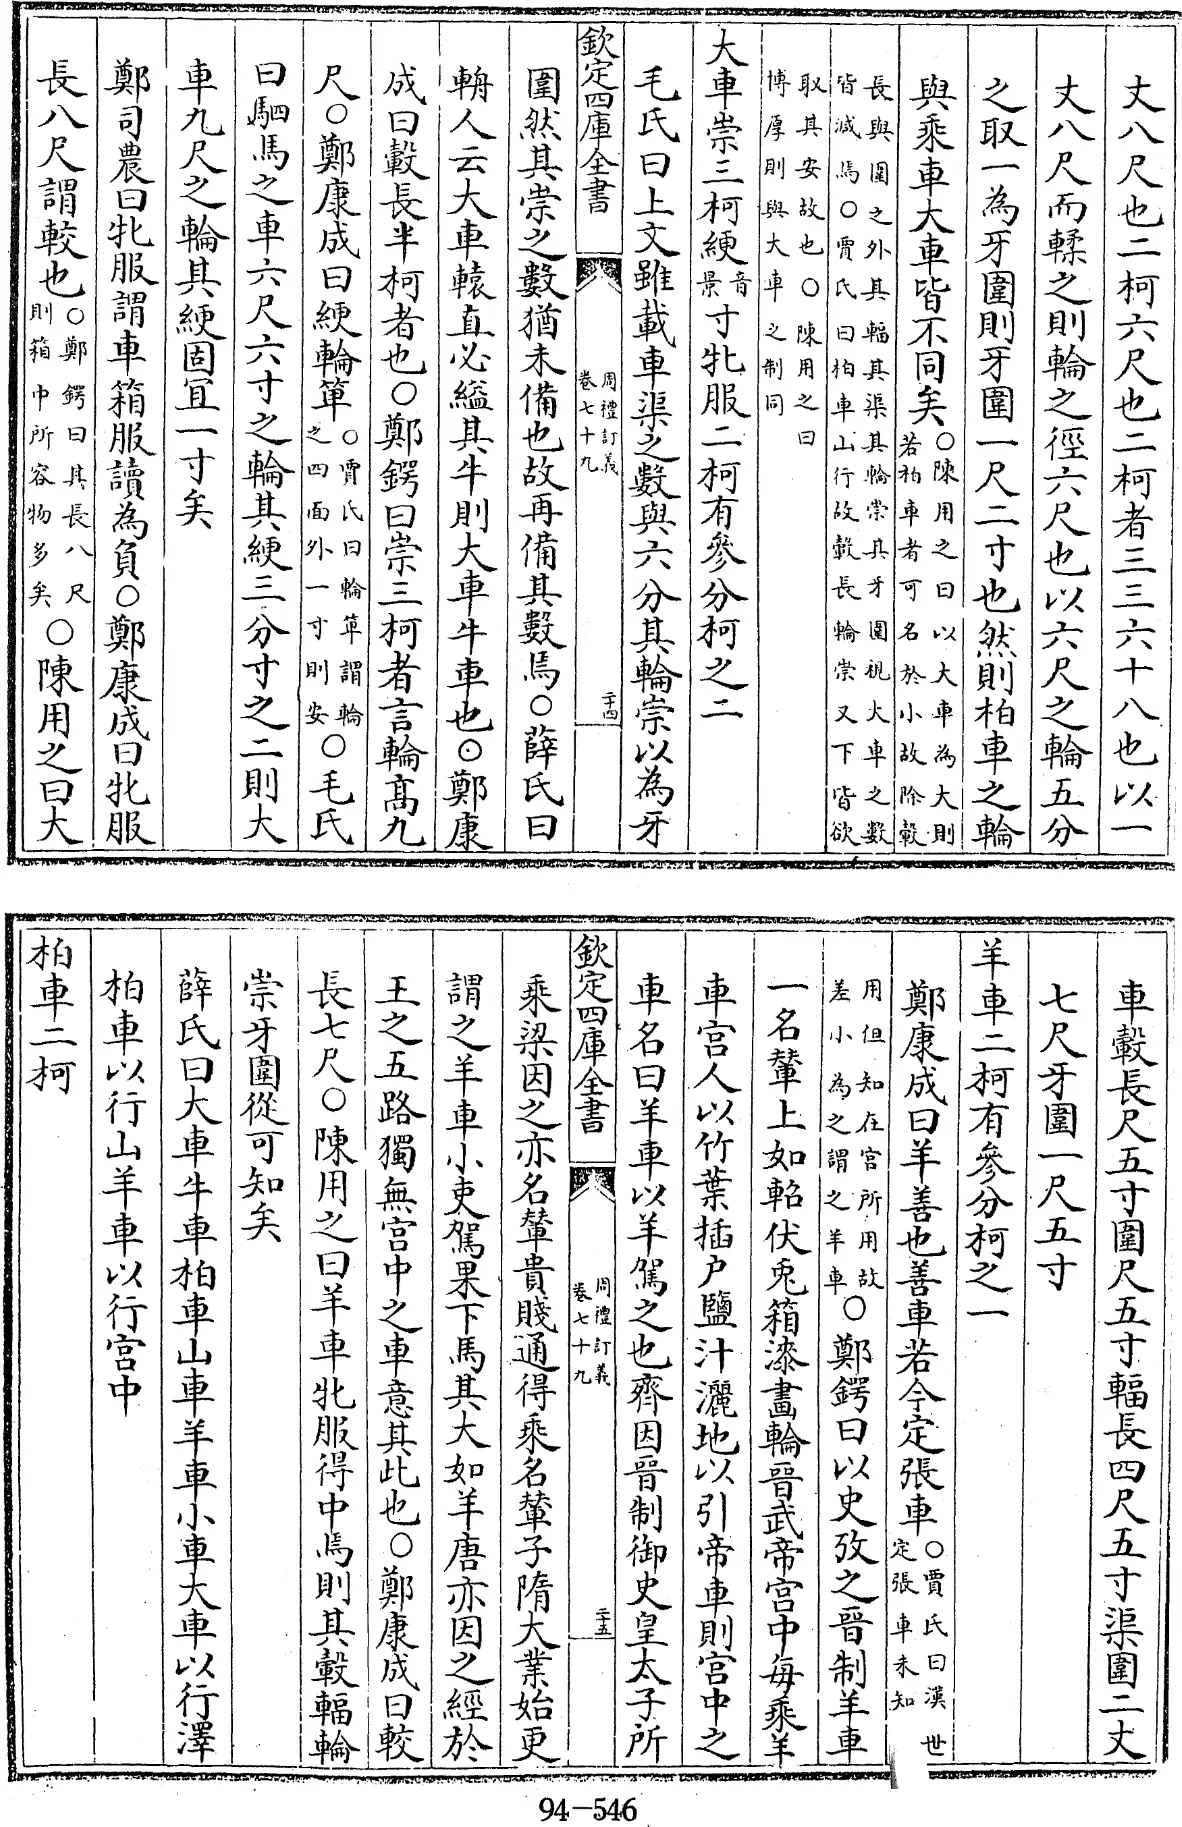 丈八尺也二柯六尺也二柯者三三六十八也以一
丈八尺而輮之則輪之徑六尺也以六尺之輪五分
之取一為牙圍則牙圍一尺二寸也然則柏車之輪
與乘車大車皆不同矣○陳用之曰以大車為大則
若柏車者可名於小故除轂
長與圍之外其輻其渠其輪崇其牙圍視大車之數
皆減焉○賈氏曰柏車山行故轂長輪崇又下皆欲
取其安故也○陳用之曰
博厚則與大車之制同
大車崇三柯綆音景寸牝服二柯有參分柯之二
毛氏曰上文雖載車渠之數與六分其輪崇以為牙
欽定四庫全書
周禮訂義
卷七十九
二十四
圍然其崇之數猶未備也故再備其數焉○薛氏曰
輈人云大車轅直必縊其牛則大車牛車也○鄭康
成曰轂長半柯者也○鄭鍔曰崇三柯者言輪髙九
尺○鄭康成曰綆輪箄○賈氏曰輪箄謂輪之四面外一寸則安○毛氏
曰駟馬之車六尺六寸之輪其綆三分寸之二則大
車九尺之輪其綆固宜一寸矣
鄭司農曰牝服謂車箱服讀為負○鄭康成曰牝服
長八尺謂較也○鄭鍔曰其長八尺則箱中所容物多矣○陳用之曰大
車轂長尺五寸圍尺五寸輻長四尺五寸渠圍二丈
七尺牙圍一尺五寸
羊車二柯有參分柯之一
鄭康成曰羊善也善車若今定張車○賈氏曰漢世
定張車未知
用但知在宫所用故
差小為之謂之羊車○鄭鍔曰以史攷之晉制羊車
一名輦上如軺伏兎箱漆畫輪晉武帝宫中每乘羊
車宫人以竹葉插户鹽汁灑地以引帝車則宫中之
車名曰羊車以羊駕之也齊因晉制御史皇太子所
欽定四庫全書
周禮訂義
卷七十九
二十五
乘梁因之亦名輦貴賤通得乘名輦子隋大業始更
謂之羊車小吏駕果下馬其大如羊唐亦因之經於
王之五路獨無宫中之車意其此也○鄭康成曰較
長七尺○陳用之曰羊車牝服得中焉則其轂輻輪
崇牙圍從可知矣
薛氏曰大車牛車柏車山車羊車小車大車以行澤
柏車以行山羊車以行宫中
柏車二柯
94-546